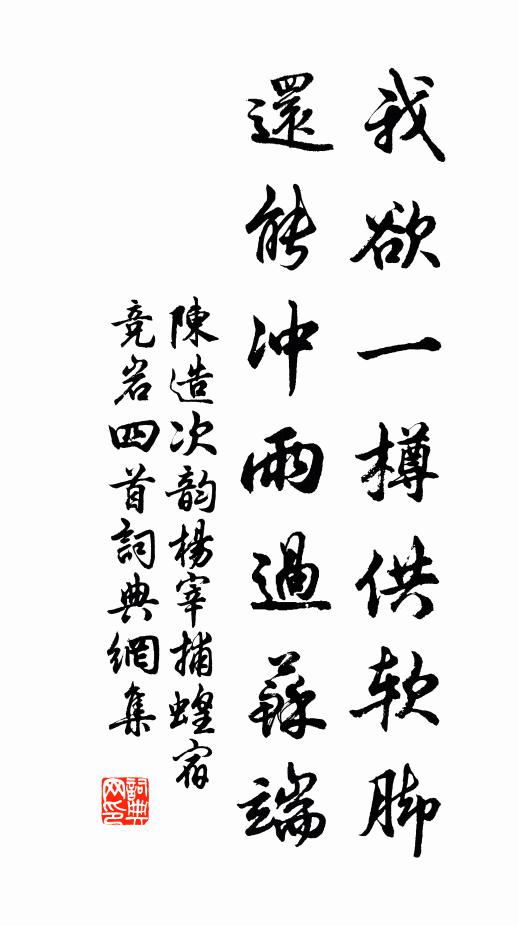 我欲一樽供软脚
還能冲雨過蘇端
陳造次韵楊宰捕蝗宿
竞岩四首詞典網集
詞典
网印